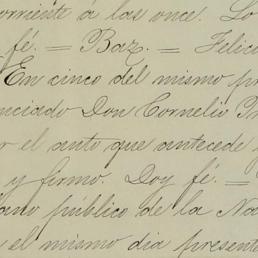 corriente á las once. Lo
fé. = Baz. = Felic
En cinco del mismo pr
enciado Don Cornelio Pr
r el auto que antecede
y firmo. Doy fé. =
ano público de la Na
el mismo dia present